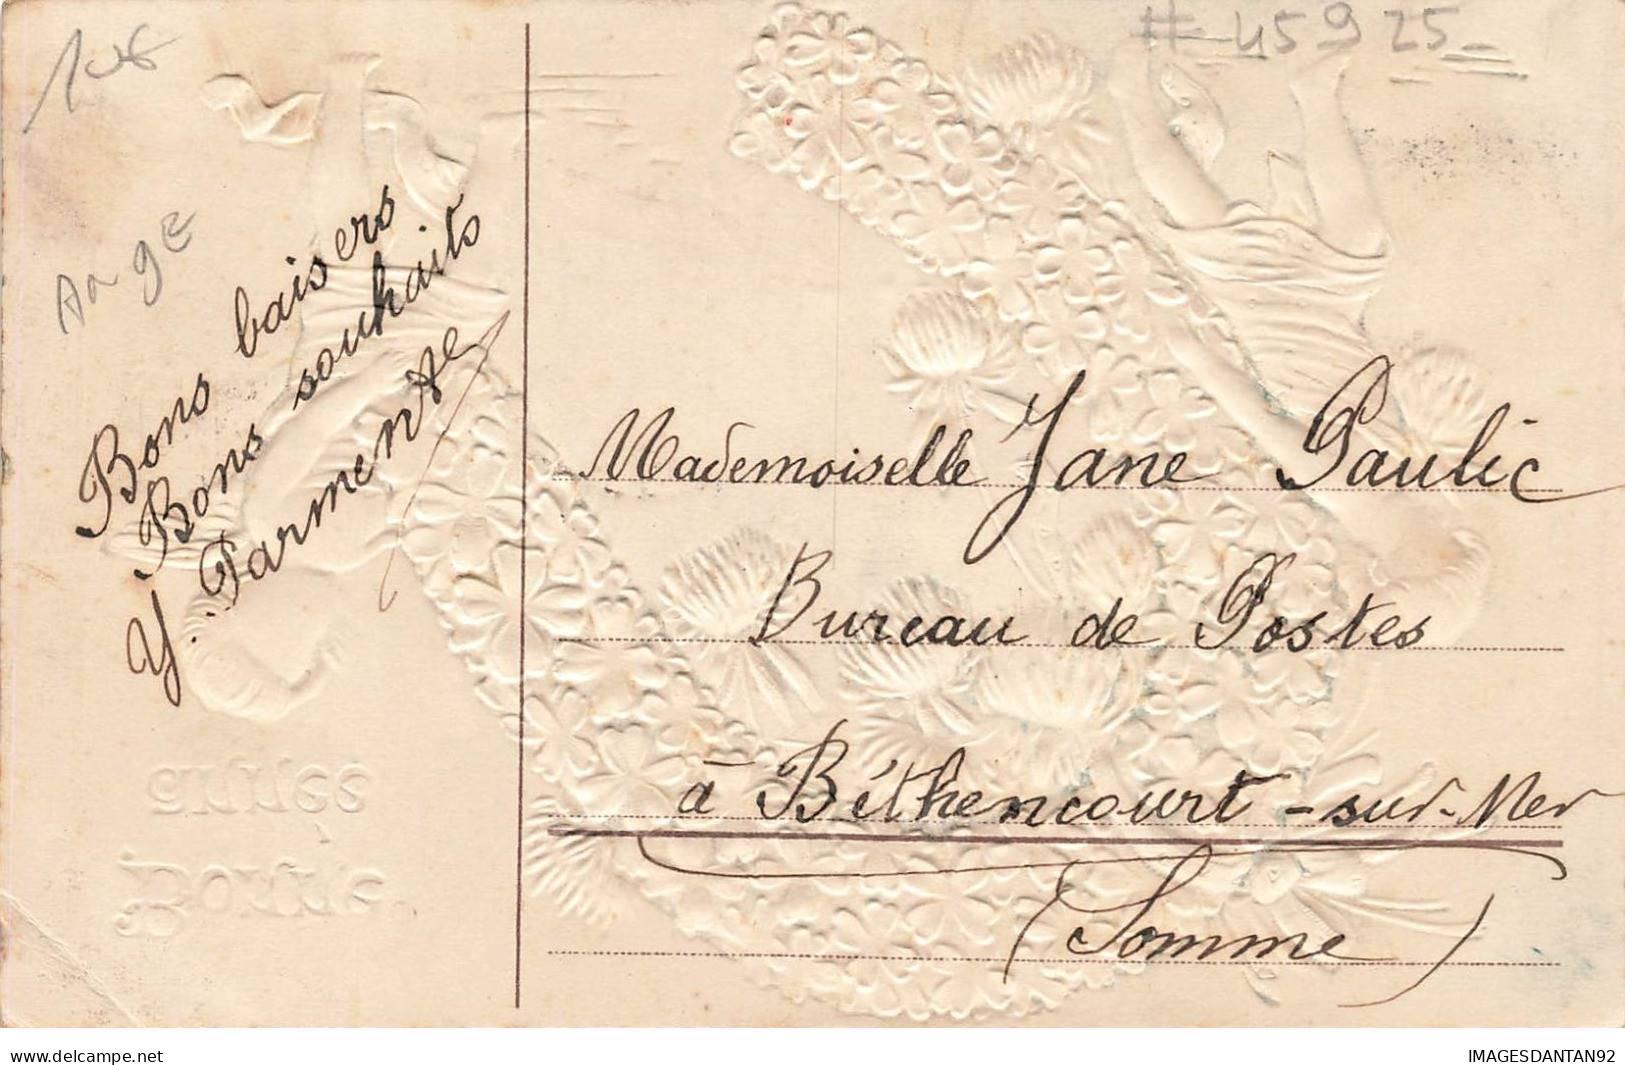 # 45925
Ange
Bons baisers
Bons souhaits
Y. Parmentie
Mademoiselle Jane Paulic
Bureau de Postes
à Béthencourt-sur-Mer
(Somme)
année
Bonne
Website : delcampe.net
IMAGESDANTAN92